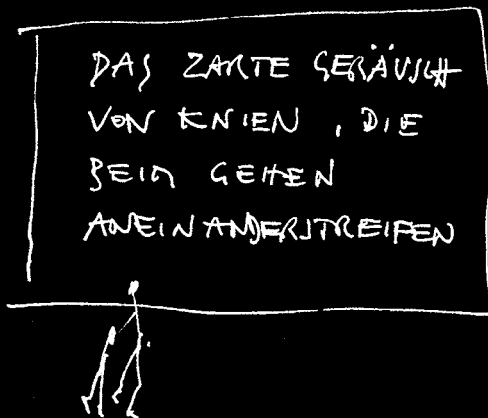 DAS ZARTE GERÄUSCH
VON KNIEN, DIE
BEIM GEHEN
ANEINANDERSTREIFEN